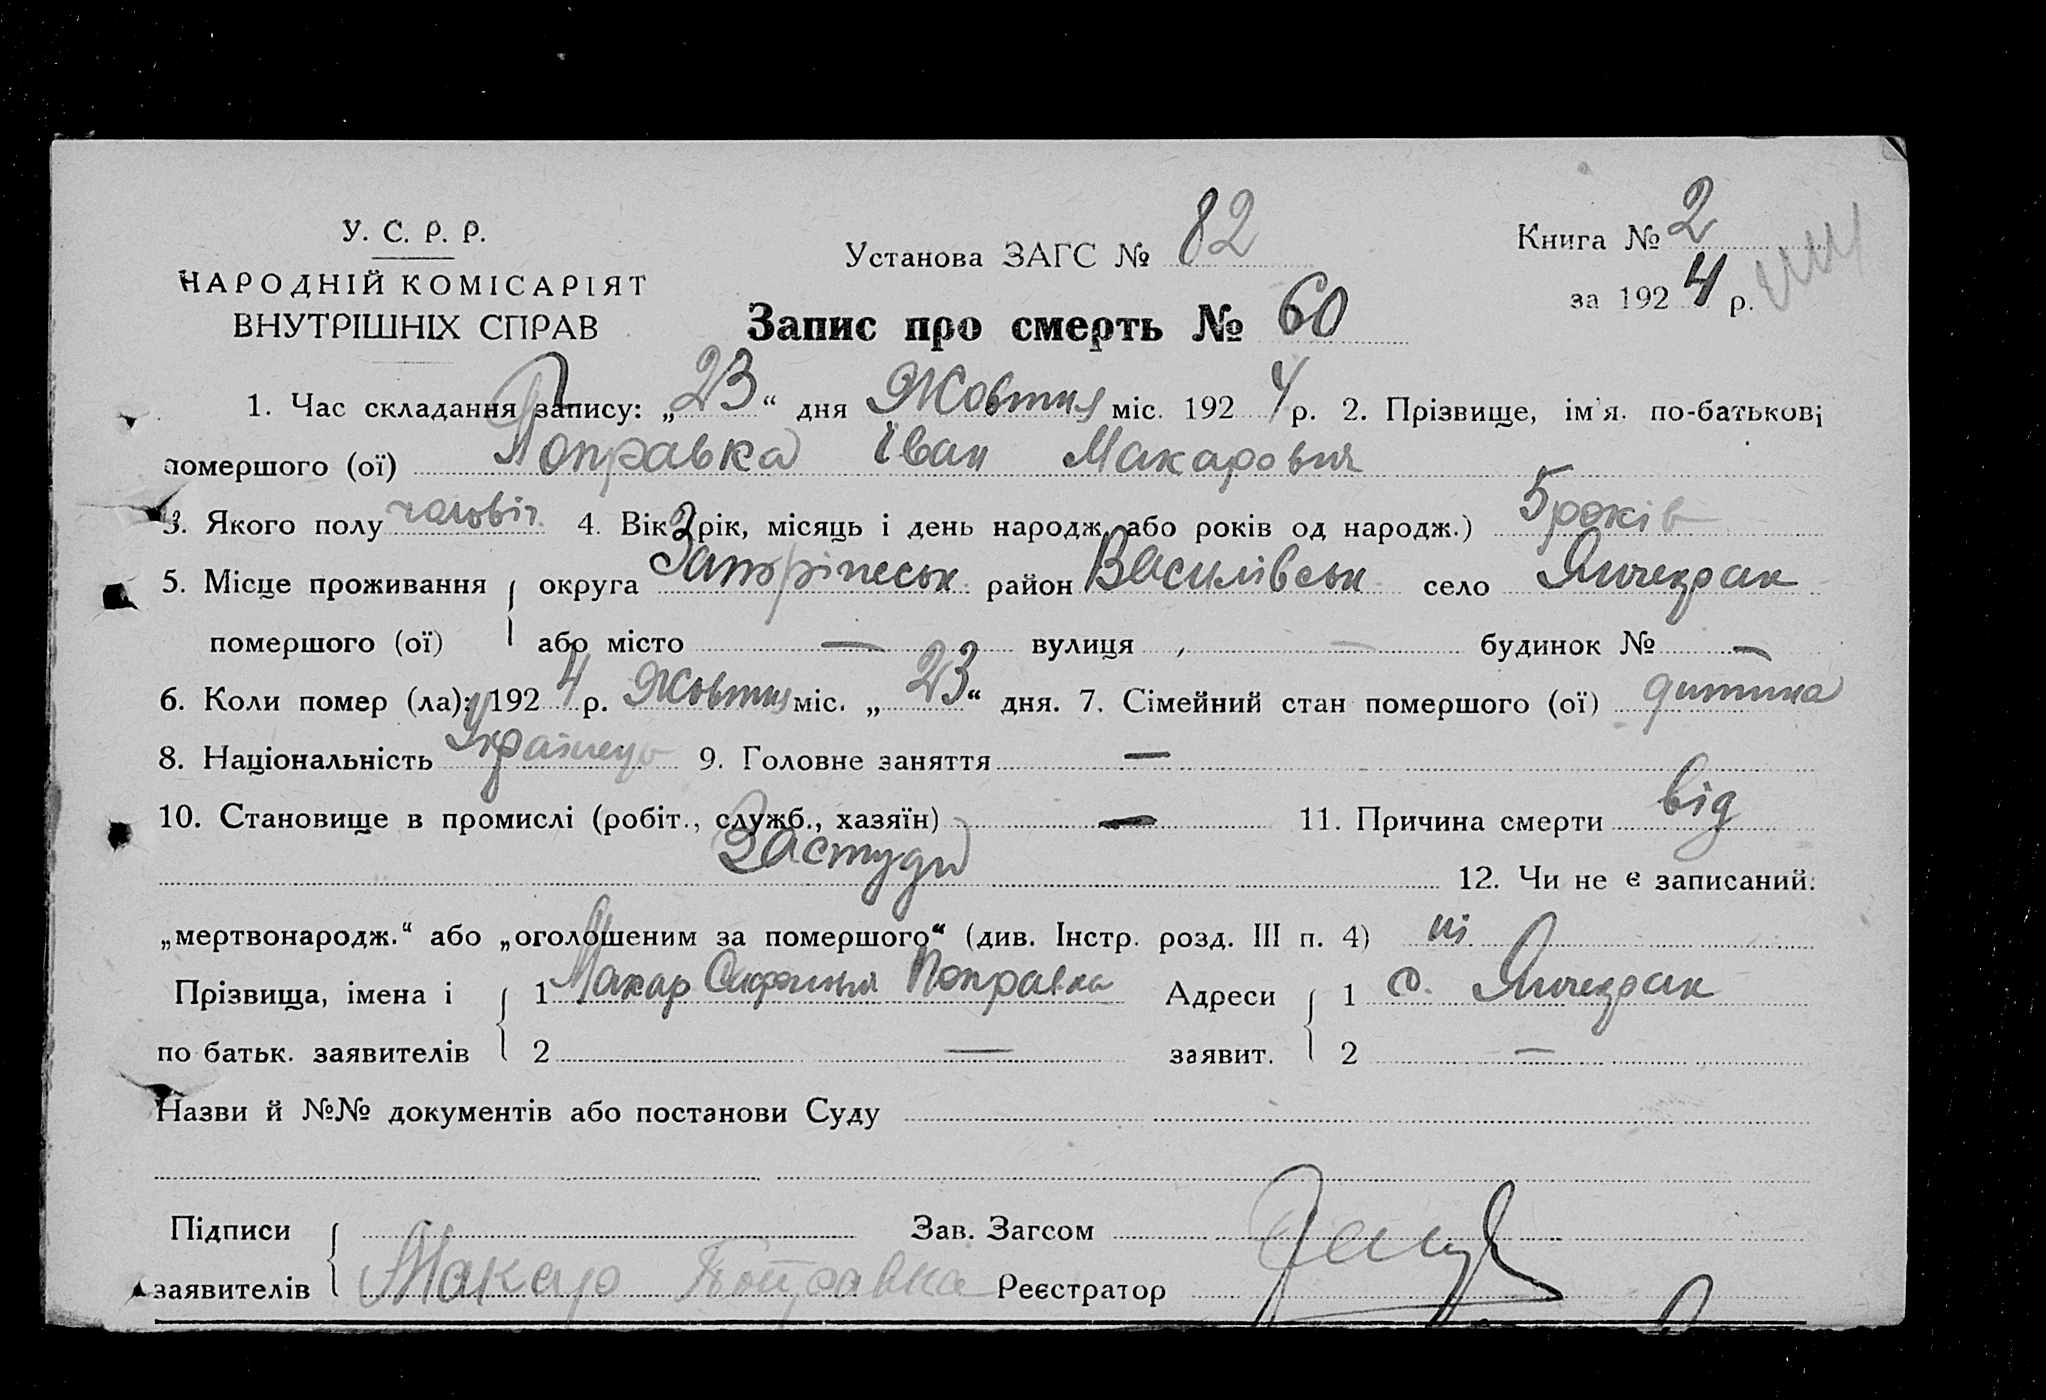 У. С. Р. Р.
НАРОДНІЙ КОМІСАРІЯТ
ВНУТРІШНІХ СПРАВ
Установа ЗАГС № 82
Книга № 2
за 1924 р.
Запис про смерть № 60
1. Час складання запису: „23“ дня Жовтня міс. 1924 р. 2. Прізвище, ім'я. по-батькові
помершого (ої) Поправка Іван Макарович
3. Якого полу чоловіч. 4. Вік (рік, місяць і день народж. або років од народж.) 5 років
5. Місце проживання округа Запоріжськ район Василівськ село Янчекрак
помершого (ої) або місто — вулиця — будинок № —
6. Коли помер (ла): 1924 р. Жовтня міс. „23“ дня. 7. Сімейний стан помершого (ої) дитина
8. Національність Українець 9. Головне заняття —
10. Становище в промислі (робіт., служб., хазяїн) — 11. Причина смерти від
Застуди 12. Чи не є записаний:
„мертвонародж.“ або „оголошеним за помершого“ (див. Інстр. розд. III п. 4) ні
Прізвища, імена і 1 Макар Поправка Адреси 1 с. Янчекрак
по батьк. заявителів 2 — заявит. 2 —
Назви й №№ документів або постанови Суду
Підписи Зав. Загсом
заявителів Макар Поправка Реєстратор